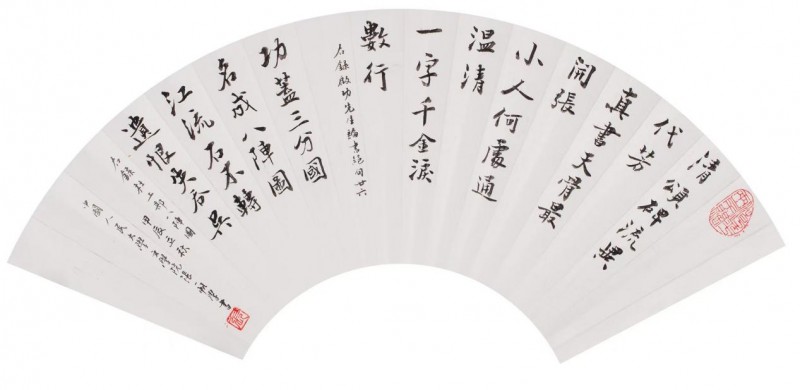 清頌碑流異
代芳
真書天骨最
開張
小人何處通
温清
一字千金淚
數行
右錄啟功先生論書絕句廿六
功蓋三分國
名成八陣圖
江流石不轉
遺恨失吞吳
右錄杜工部八陣圖 甲辰立秋
中國人民大學書